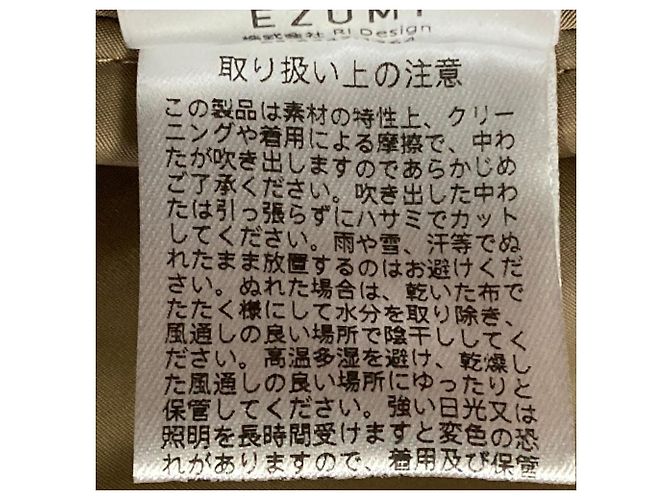 EZUMI
株式会社 RI Design
取り扱い上の注意
この製品は素材の特性上、クリー
ニングや着用による摩擦で、中わ
たが吹き出しますのであらかじめ
ご了承ください。吹き出した中わ
たは引っ張らずにハサミでカット
してください。雨や雪、汗等でぬ
れたまま放置するのはお避けくだ
さい。ぬれた場合は、乾いた布で
たたく様にして水分を取り除き、
風通しの良い場所で陰干ししてく
ださい。高温多湿を避け、乾燥し
た風通しの良い場所にゆったりと
保管してください。強い日光又は
照明を長時間受けますと変色の恐
れがありますので、着用及び保管